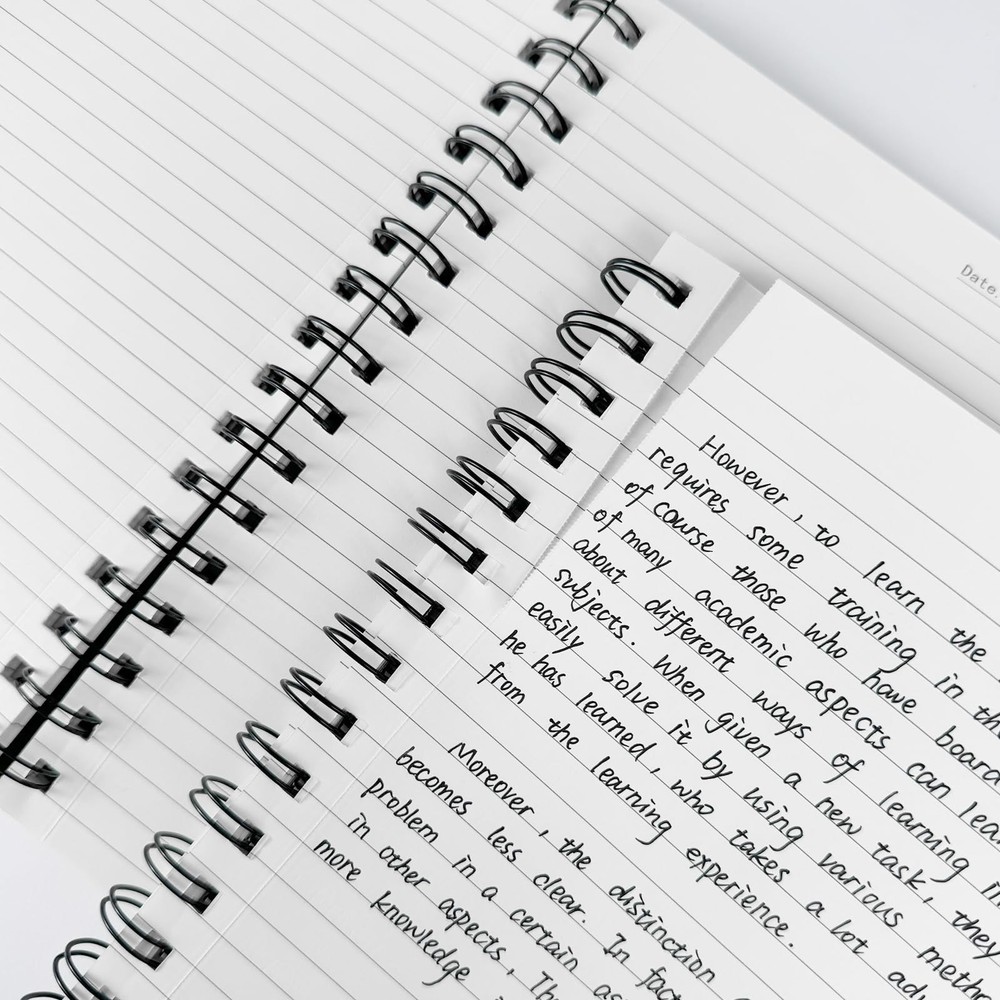 However , to learn the
requires some training in th
of course those who have board
of many academic aspects can lea
about different ways of learning in
subjects. When given a new task, they
easily solve it by using various meth
he has learned, who takes a lot ad
from the learning experience.
Moreover , the distinction
becomes less clear. In fact
problem in a certain as
in other aspects. Th
more knowledge
Date